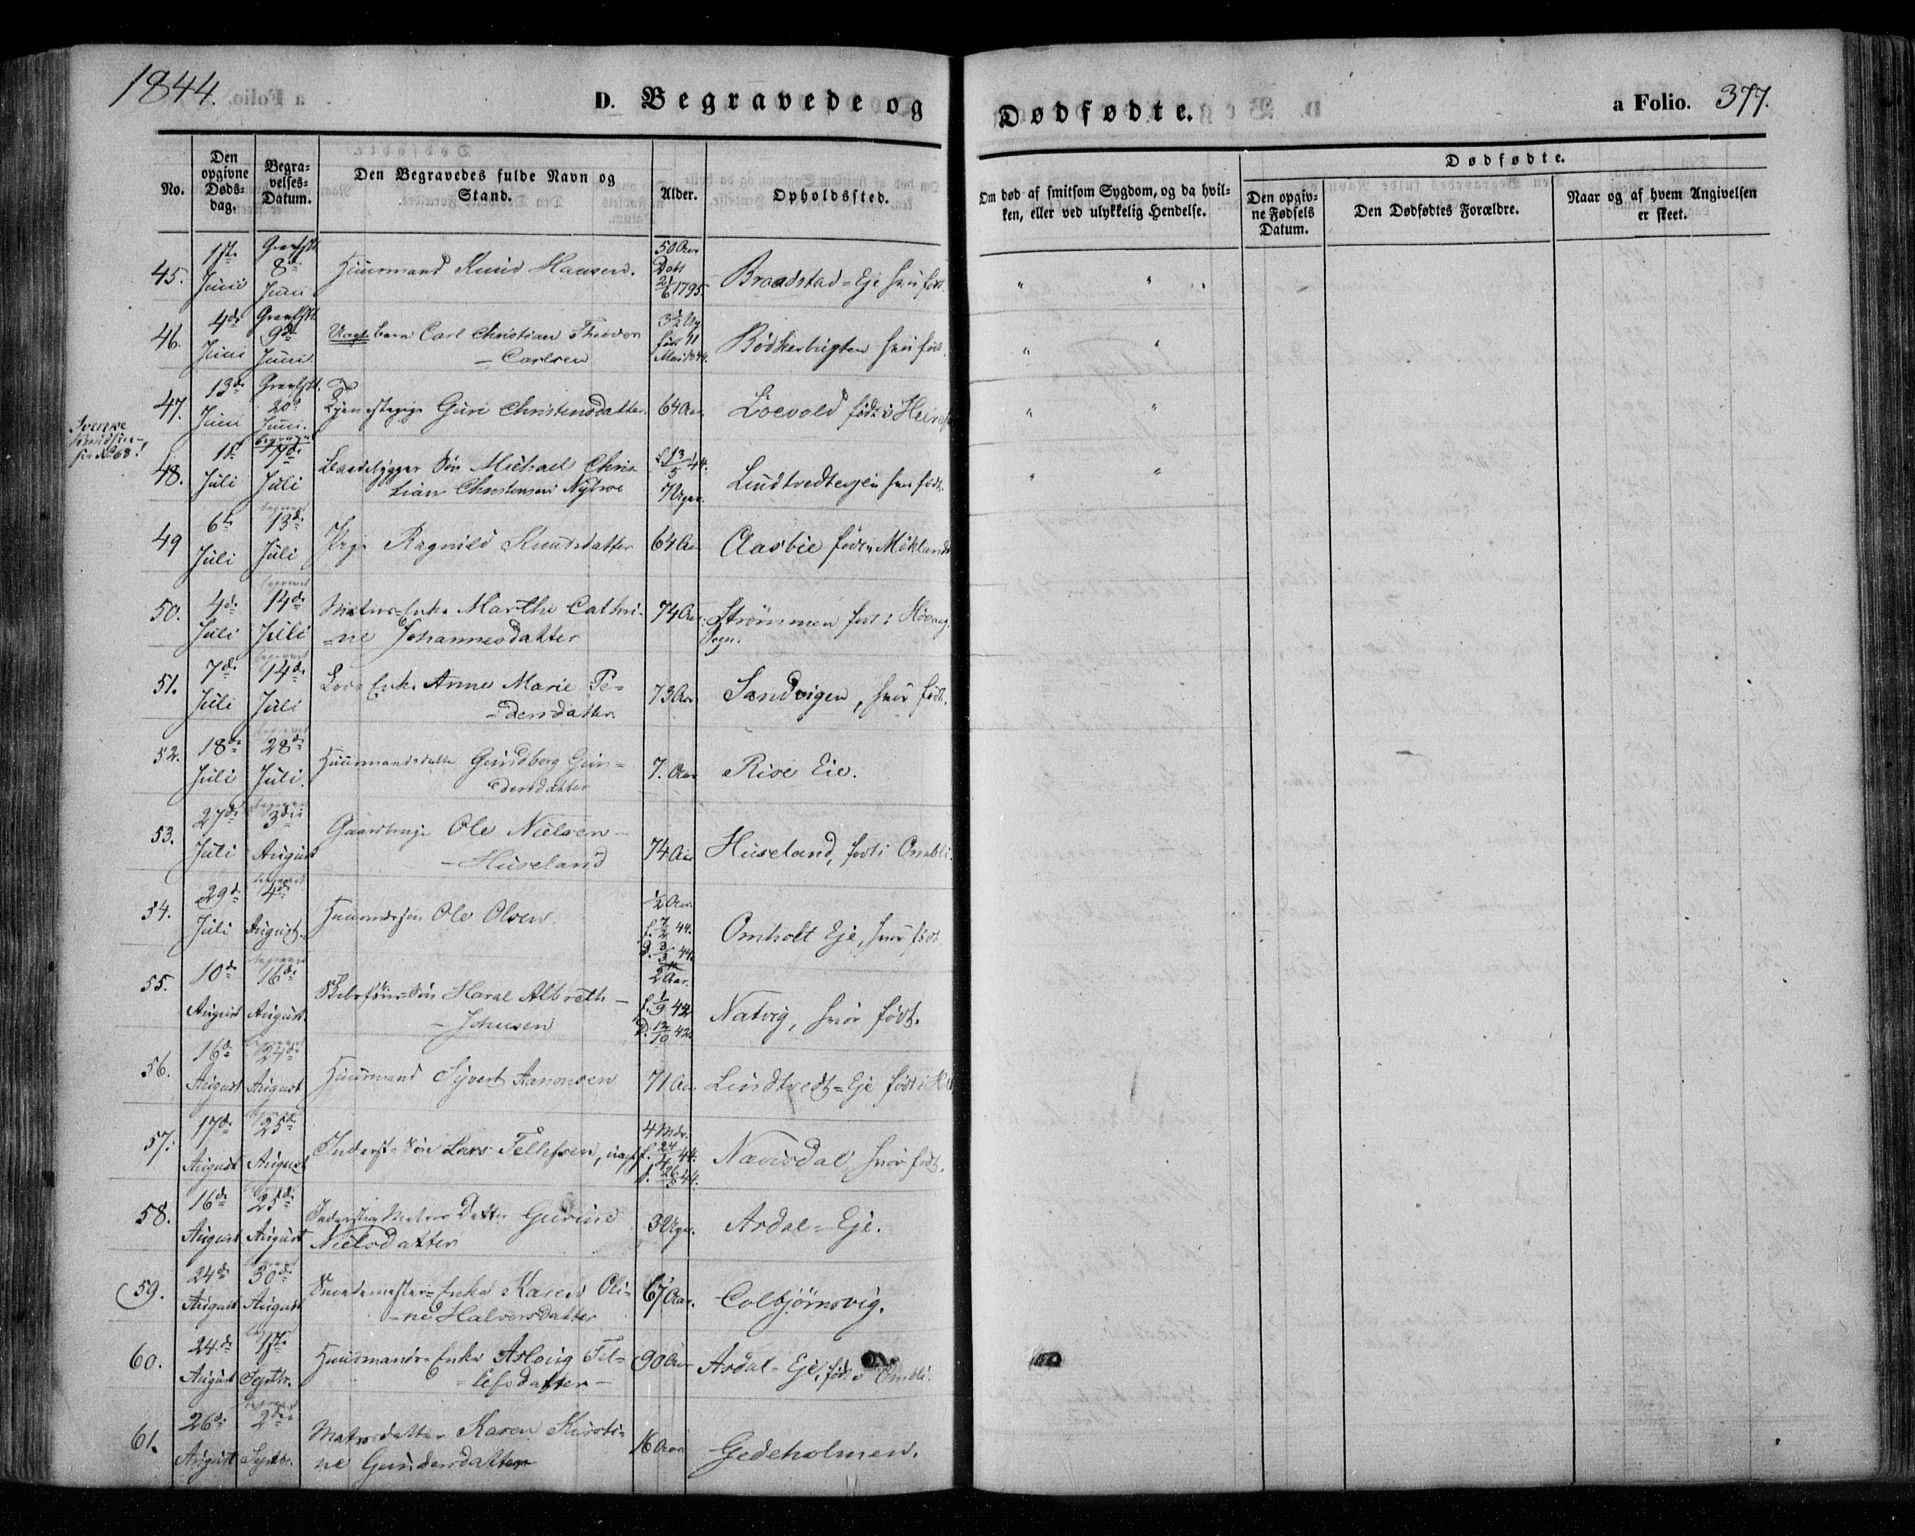 1844.
D. Begravede og
Dødfødte.
a Folio. 377.
No.
Den opgivne Døds-dag.
Begra-velses-Datum.
Den Begravedes fulde Navn og Stand.
Alder.
Opholdssted.
Om død af smitsom Sygdom, og da hvil-
ken, eller ved ulykkelig Hendelse.
Dødfødte.
Den opgiv-
ne Fødsels
Datum.
Den Dødfødtes Forældre.
Naar og af hvem Angivelsen
er skeet.
45. 1te Juni 8de Juni Huusmand Knud Hansen. 50 Aar Døbt 21/6 1795 Braadstad-Eje hvor født.
46. 4de Juni 9de Juni Carl Christian Theodor
Carlsen 3½ Ug født 11 Mai 1844 Bødkerbugten hvor født.
47. 13de Juni 20de Juni Guri Christensdatter. 64 Aar Loevold født i
48. 1te Juli 17de Juli Søn Michael Chris-
tian Christensen 7 Uger Lindtvedtejen hvor født.
49 6te Juli 13de Juli Pige Ragnild Knudsdatter 64 Aar Aasbie født i
50. 4de Juli 14de Juli Enke Marthe Cathri-
ne Johannesdatter 74 Aar Strømmen født i Høvaag
Sogn.
51. 7de Juli 14de Juli Enke Anne Marie Pe-
dersdatter. 73 Aar Sandvigen, hvor født.
52. 18de Juli 28de Juli. Huusmandsdatter Gundborg Gun-
dersdatter 7. Aar Risø Eie.
53. 27de Juli 3die August Ole Nielsen
Huseland 74 Aar Huseland, født i Ombli.
54. 29de Juli 4de August. Ole Olsen ½ Aar f. 7/2 44. D. 3/3 44. Omholt Eje, hvor født.
55. 10de August 16de August. Søn Haral Albreth
Johnsen 2 Aar. f. 1/9 42 D. 12/10 42. Natvig, hvor født.
56. 16de August 24de August Huusmand Syvert Aanonsen 71 Aar Lindtvedt-Eje født i
57. 17de August 25de August Inderst-Søn Lars Tellefsen, 4 Mdr. Nævisdal, hvor født.
58. 16de August 25de August Datter Gurine
Nielsdatter 3 Uger Asdal-Eje.
59. 24de August 30de August Enke Karen Oli-
ne Halvorsdatter 67 Aar. Colbjørnsvig.
60. 24de August 1te Septbr. Huusmands-Enke Aslaug Tel-
lefsdatter 90 Aar Asdal-Eje, født i Ombli.
61. 26de August 2den Septbr. Matrosdatter Karen Kirsti-
ne Gundersdatter 16 Aar Gedeholmen.